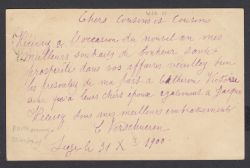 Chers Cousines et Cousins
Recevez à l'occasion du nouvel an mes
meilleurs souhaits de bonheur santé
prospérité dans vos affaires veuillez bien
les de ma part à Catherine Victoire
ainsi leurs chers époux également à Jacques
Recevez tous mes meilleurs embrassements
L Verscheuren
Liège le 31 X 1900